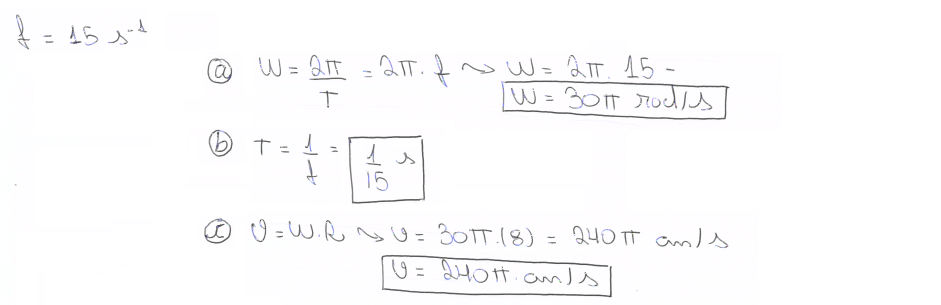 f = 15 s⁻¹
ⓐ W = 2π/T = 2π. f ⤳ W = 2π. 15 -
W = 30π rad/s
ⓑ T = 1/f = 1/15 s
ⓒ v = W.R ⤳ v = 30π.(8) = 240π cm/s
v = 240π. cm/s